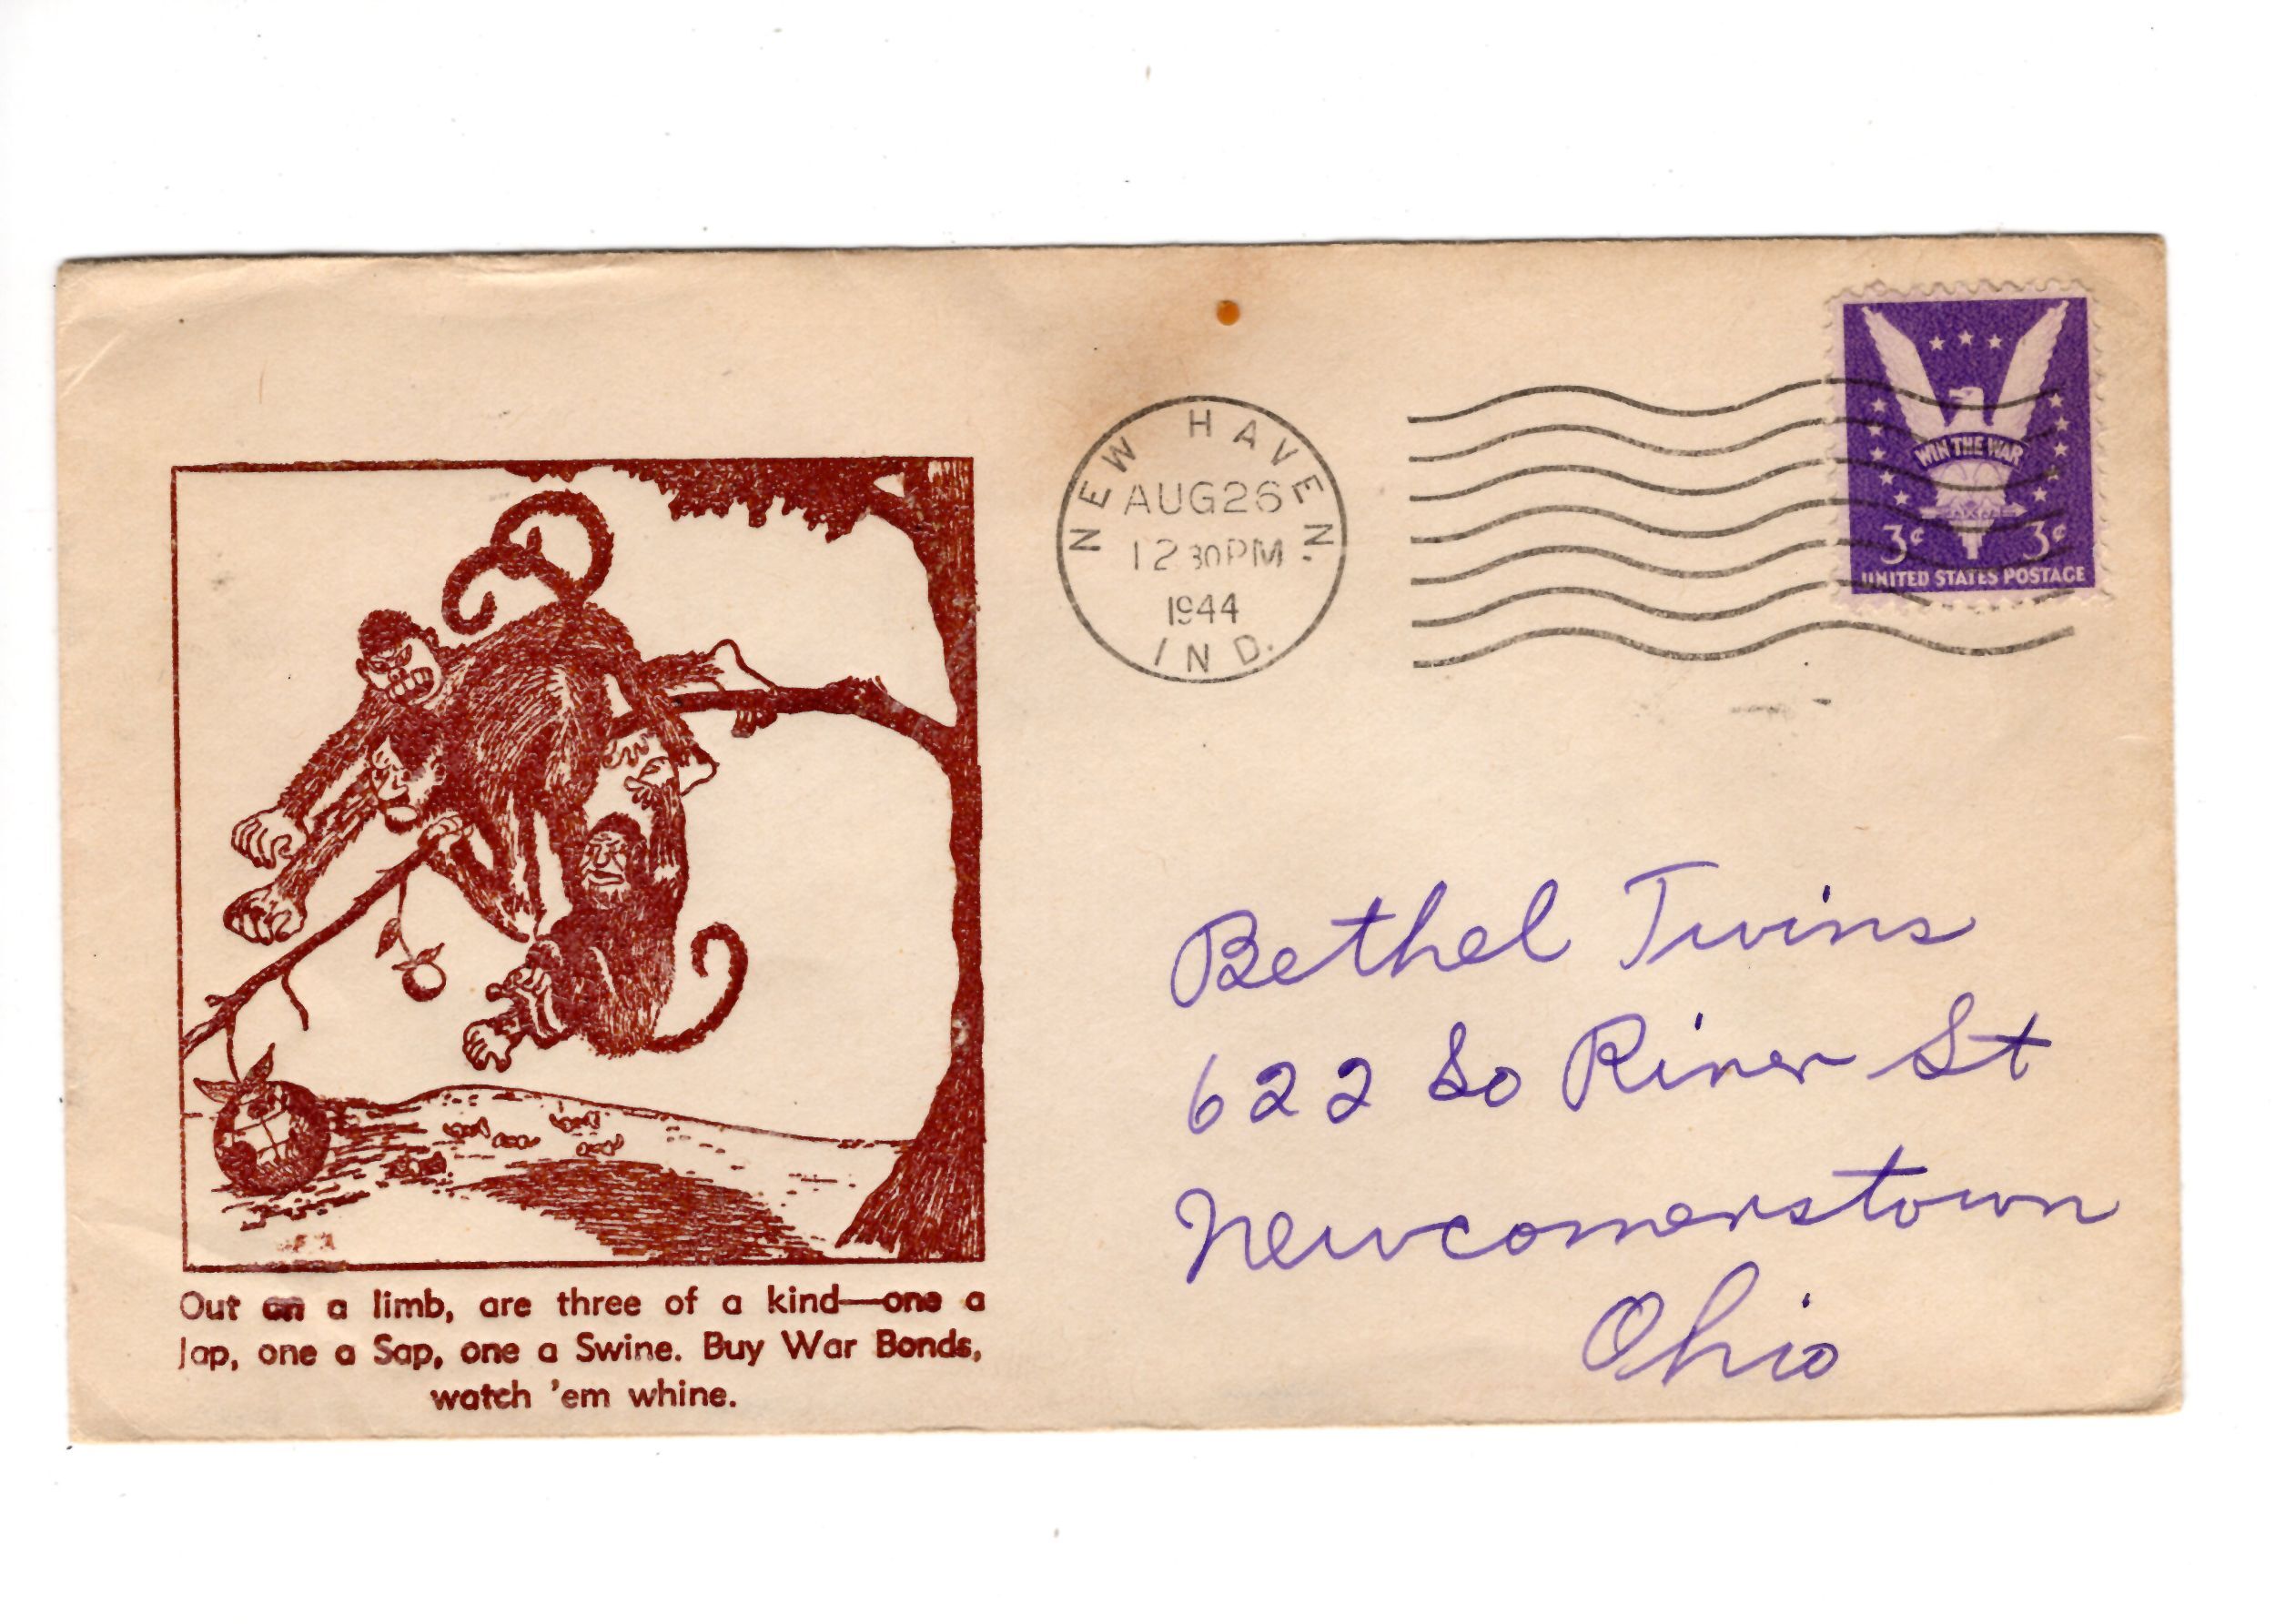 NEW HAVEN.
AUG 26
12 30 PM
1944
IND.
WIN THE WAR
3¢ 3¢
UNITED STATES POSTAGE
Bethel Twins
622 So River St
Newcomerstown
Ohio
Out on a limb, are three of a kind—one a
Jap, one a Sap, one a Swine. Buy War Bonds,
watch 'em whine.